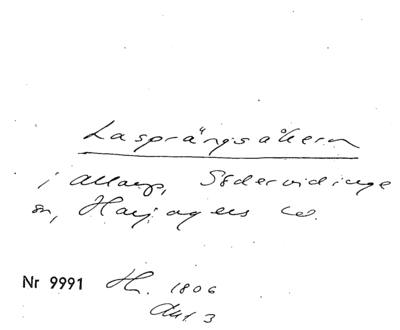 Lasprängsåkern
i Allarp, Södervidinge
sn, Harjagers hd.
Nr 9991 Hn. 1806
Akt 3